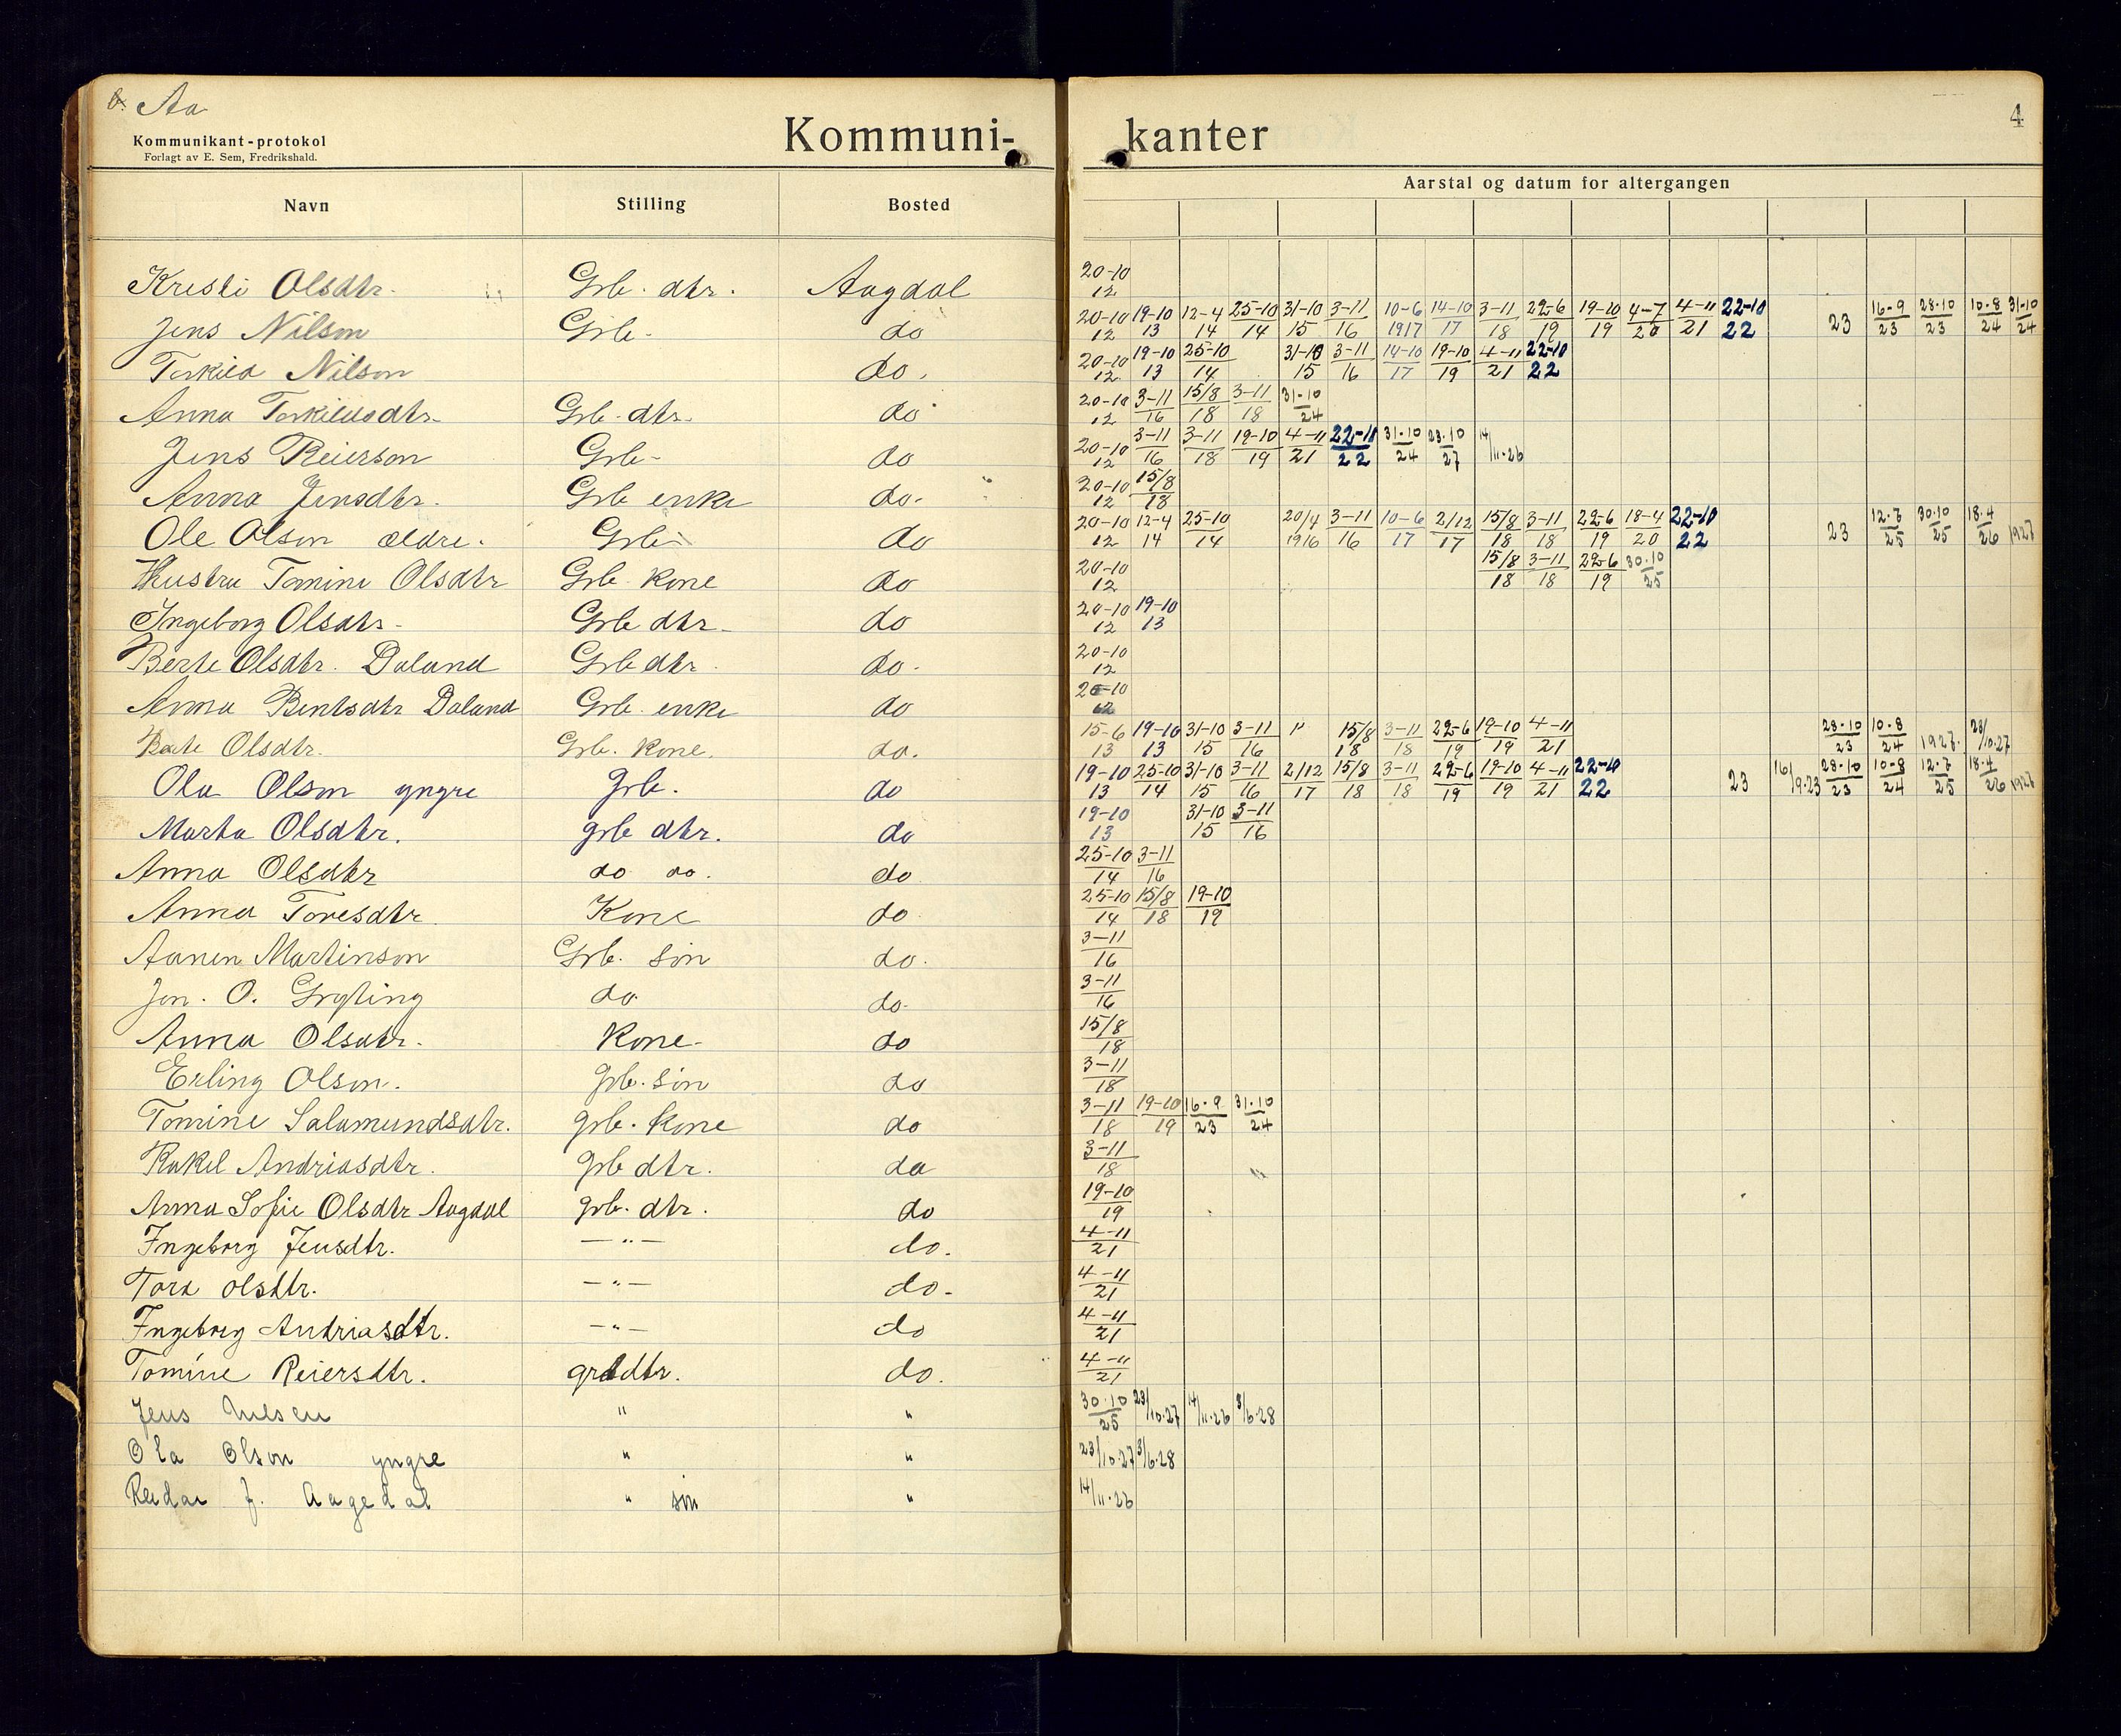 b. Aa
4
Kommunikant-protokol
Forlagt av E. Sem, Fredrikshald.
Kommuni- kanter
Aarstal og datum for altergangen
Navn Stilling Bosted
Kresti Olsdtr. Grb. dtr. Aagdal 20-10/12
Jens Nilson Grb. do 20-10/12 19-10/13 12-4/14 25-10/14 31-10/15 3-11/16 10-6/1917 14-10/17 3-11/18 22-6/19 19-10/19 4-7/20 4-11/21 22-10/22 23 16-9/23 28.10/23 10.8/24 31-10/24
Torkild Nilson do. 20-10/12 19-10/13 25-10/14 31-10/15 3-11/16 14-10/17 19-10/19 4-11/21 22-10/22
Anna Torkildsdtr. Grb. dtr. do 20-10/12 3-11/16 15/8/18 3-11/18 31-10/24
Jens Reierson Grb. do 20-10/12 3-11/16 3-11/18 19-10/19 4-11/21 22-11/22 31.10/24 23.10/27 14/11.26
Anna Jensdtr. Grb enke do. 20-10/12 15/8/18
Ole Olson ældre. Grb. do 20-10/12 12-4/14 25-10/14 20/4/1916 3-11/16 10-6/17 2/12/17 15/8/18 3-11/18 22-6/19 18-4/20 22-10/22 23 12.7/25 30.10/25 18.4/26 1927
Hustru Tomine Olsdtr Grb. kone do 20-10/12 15/8/18 3-11/18 22-6/19 30.10/25
Ingeborg Olsdtr. Grb dtr. do 20-10/12 19-10/13
Berte Olsdtr. Daland Grb dtr. do. 20-10/12
Anna Bentsdtr Daland Grb. enke do 20-10/12
Berte Olsdtr. Grb. kone. do. 15-6/13 19-10/13 31-10/15 3-11/16 15/8/18 3-11/18 22-6/19 19-10/19 4-11/21 28-10/23 10-8/24 1927. 23/10.27
Ola Olson yngre grb. do 19-10/13 25-10/14 31-10/15 3-11/16 2/12/17 15/8/18 3-11/18 22-6/19 19-10/19 4-11/21 22-10/22 23 16/9.23 28-10/23 10-8/24 12.7/25 18.4/26 1927
Marta Olsdtr. grb dtr. do 19-10/13 31-10/15 3-11/16
Anna Olsdtr do do. do 25-10/14 3-11/16
Anna Toresdtr. Kone do 25-10/14 15/8/18 19-10/19
Aanen Martinson Grb. søn do. 3-11/16
Jon. O. Gryting do. do. 3-11/16
Anna Olsdtr. Kone. do 15/8/18
Erling Olson. grb. søn do 3-11/18
Tomine Salamundsdtr. grb. kone do 3-11/18 19-10/19 16-9/23 31-10/24
Rakel Andriasdtr. grb dtr. do 3-11/18
Anna Sofie Olsdtr Aagdal grb. dtr. do 19-10/19
Ingeborg Jensdtr. — " — do. 4-11/21
Tora olsdtr. — " — do. 4-11/21
Ingeborg Andriasdtr. — " — do 4-11/21
Tomine Reiersdtr. grbdtr. do. 4-11/21
Jens Nilsen " " 30.10/25 23/10.27 14/11.26 3/6.28
Ola Olson yngre " " 23/10.27 3/6.28
Reidar J. Aagedal " søn " 14/11.26